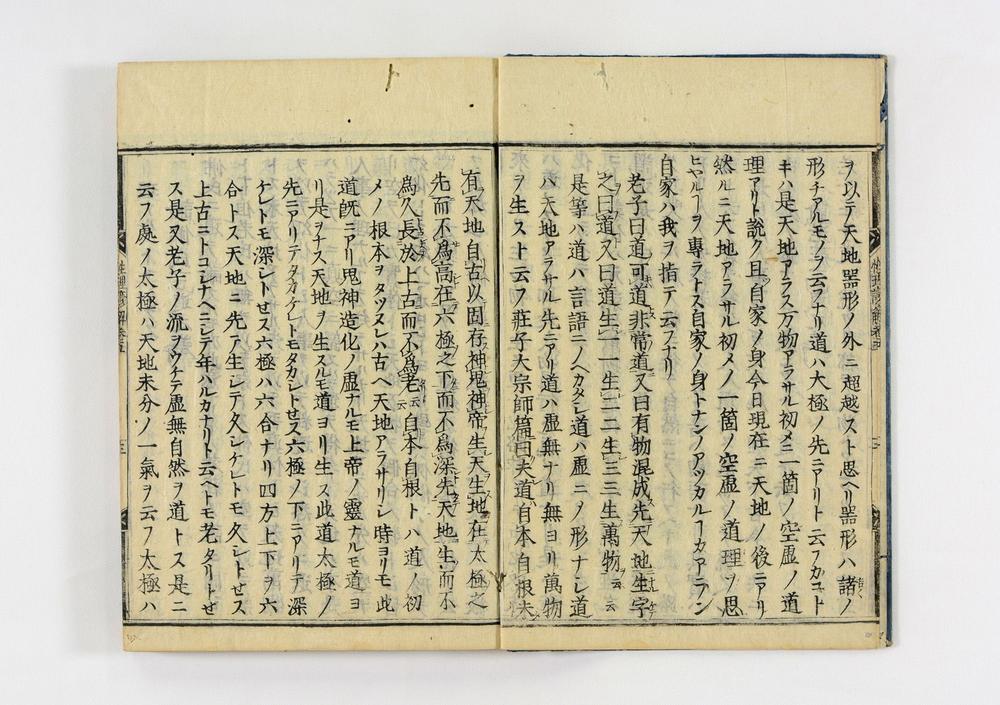 ヲ以テ天地器形ノ外ニ超越スト思ヘリ器形ハ諸ノ
形チアルモノヲ云フナリ道ハ大極ノ先ニアリト云フカコト
キハ是天地アラス万物アラサル初メニ一箇ノ空虚ノ道
理アリト説ク且自家ノ身今日現在ニ天地ノ後ニアリ
然ルニ天地アラサル初メノ一箇ノ空虚ノ道理ヲ思
ヒヤルヿヲ專ラトス自家ノ身トナンノアツカルヿカアラン
自家ハ我ヲ指テ云フナリ
老子曰道可道非常道又曰有物混成先天地生字
之曰道又曰道生一一生二二生三三生萬物云云
是等ハ道ハ言語ニノヘカタシ道ハ虚ニノ形ナシ道
ハ天地アラサル先ニアリ道ハ虚無ナリ無ヨリ萬物
ヲ生スト云フ莊子大宗師篇曰夫道自本自根未
有天地自古以固存神鬼神帝生天生地在太極之
先而不爲高在六極之下而不爲深先天地生而不
爲久長於上古而不爲老云云自本自根トハ道ノ初
メノ根本ヲタツヌレハ古ヘ天地アラサリシ時ヨリモ此
道旣ニアリ鬼神造化ノ虚ナルモ上帝ノ靈ナルモ道ヨ
リ是ヲナス天地ヲ生スルモ道ヨリ生ス此道太極ノ
先ニアリテタカケレトモタカシトせス六極ノ下ニアリテ深
ケレトモ深シトせス六極ハ六合ナリ四方上下ヲ六
合トス天地ニ先ア生シテ久シケレトモ久シトせス
上古ニトコシナヘニシテ年ハルカナリト云ヘトモ老タリトせ
ス是又老子ノ流ヲウケテ虚無自然ヲ道トス是ニ
云フ處ノ太極ハ天地未分ノ一氣ヲ云フ太極ハ